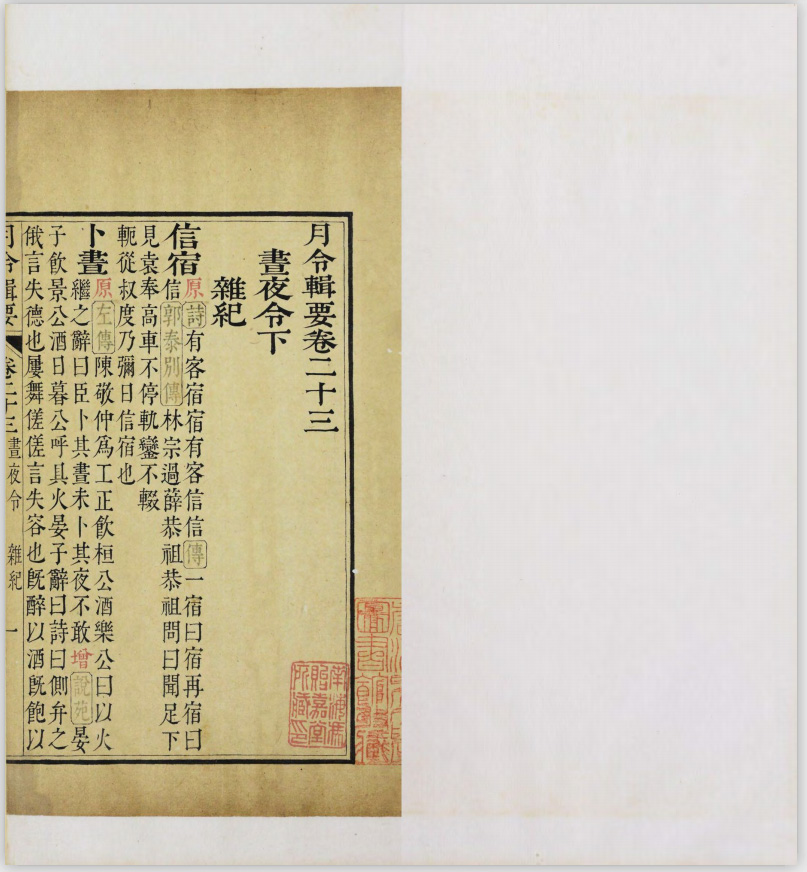 月令輯要卷二十三
晝夜令下
雜紀
信宿原詩有客宿宿有客信信傳一宿曰宿再宿曰
信郭泰別傳林宗過薛恭祖恭祖問曰聞足下
見袁奉高車不停軌鑾不輟
軛從叔度乃彌日信宿也
卜晝原左傳陳敬仲爲工正飲桓公酒樂公曰以火
繼之辭曰臣卜其晝未卜其夜不敢增說苑晏
子飲景公酒日暮公呼具火晏子辭曰詩曰側弁之
俄言失德也屢舞傞傞言失容也旣醉以酒旣飽以
月令輯要 卷二十三 晝夜令 雜紀 一
南海馮
貽嘉堂
所藏印